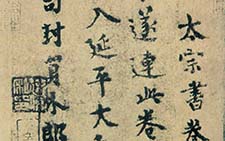 太宗書卷
遂連此卷
入延平大
司封員外郎